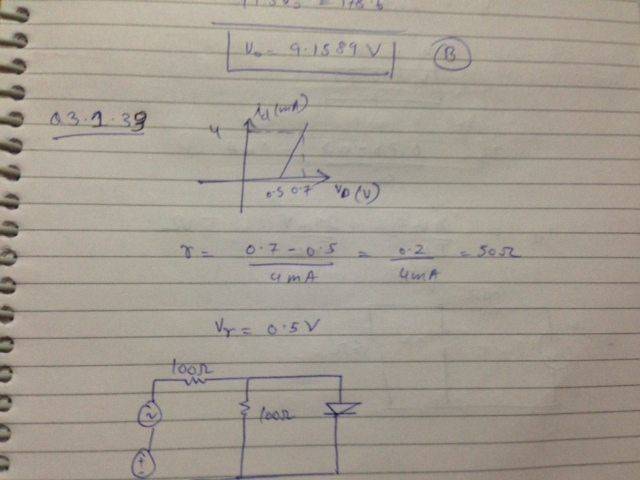 V₀ = 9.1589 V
B
03.1.39
Id (mA)
4
0.5 0.7 VD (V)
r = 0.7 - 0.5 / 4mA = 0.2 / 4mA = 50Ω
Vr = 0.5V
100Ω
100Ω